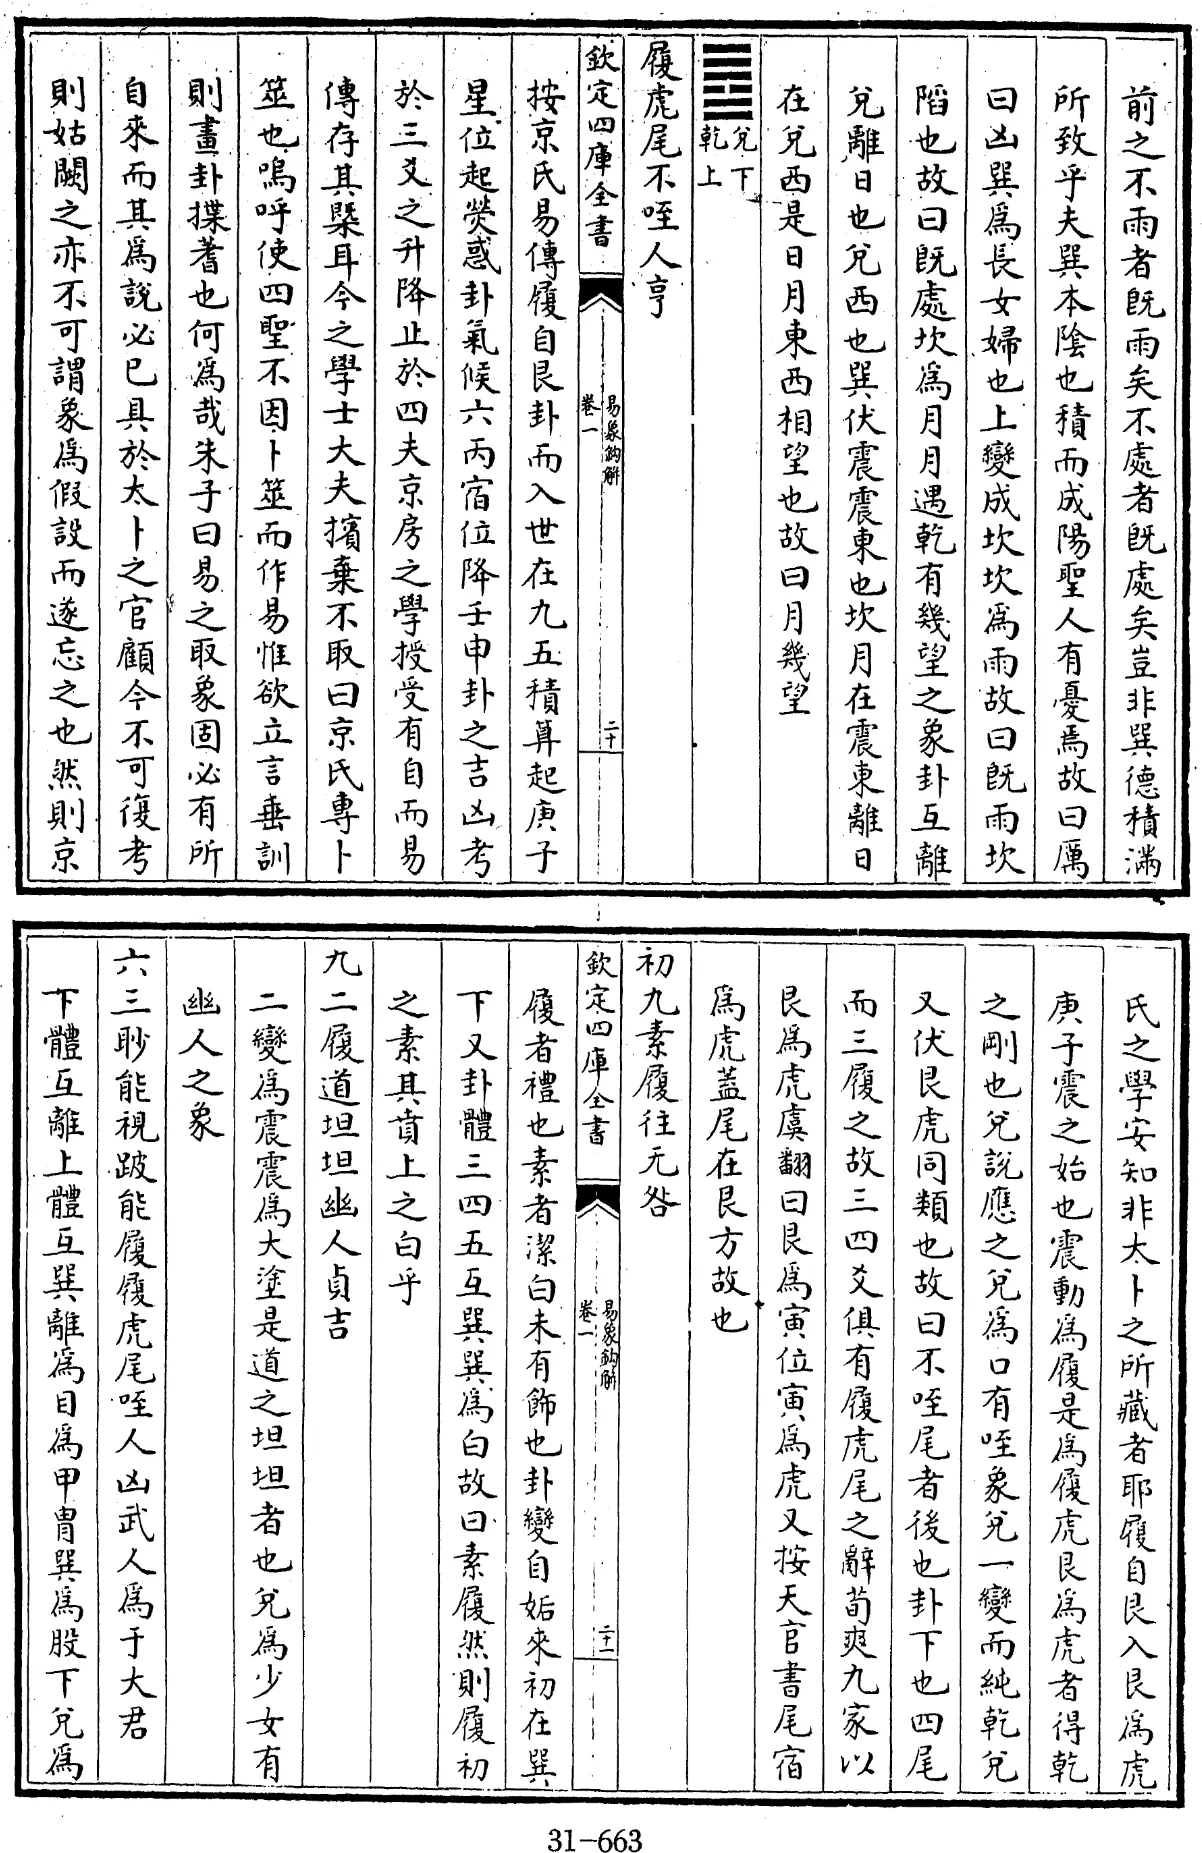 前之不雨者既雨矣不處者既處矣豈非巽德積滿
所致乎夫巽本陰也積而成陽聖人有憂焉故曰厲
曰凶巽為長女婦也上變成坎坎為雨故曰既雨坎
陷也故曰既處坎為月月遇乾有幾望之象卦互離
兌離日也兌西也巽伏震震東也坎月在震東離日
在兌西是日月東西相望也故曰月幾望
兌下
乾上
履虎尾不咥人亨
欽定四庫全書
易象鈎解
卷一
二十
按京氏易傳履自艮卦而入世在九五積算起庚子
星位起熒惑卦氣候六丙宿位降壬申卦之吉凶考
於三爻之升降止於四夫京房之學授受有自而易
傳存其槩耳今之學士大夫擯棄不取曰京氏專卜
筮也嗚呼使四聖不因卜筮而作易惟欲立言垂訓
則畫卦揲蓍也何為哉朱子曰易之取象固必有所
自來而其為說必已具於太卜之官顧今不可復考
則姑闕之亦不可謂象為假設而遂忘之也然則京
氏之學安知非太卜之所藏者耶履自艮入艮為虎
庚子震之始也震動為履是為履虎艮為虎者得乾
之剛也兌說應之兌為口有咥象兌一變而純乾兌
又伏艮虎同類也故曰不咥尾者後也卦下也四尾
而三履之故三四爻俱有履虎尾之辭荀爽九家以
艮為虎虞翻曰艮為寅位寅為虎又按天官書尾宿
為虎蓋尾在艮方故也
初九素履往无咎
欽定四庫全書
易象鈎解
卷一
二十一
履者禮也素者潔白未有飾也卦變自姤來初在巽
下又卦體三四五互巽巽為白故曰素履然則履初
之素其賁上之白乎
九二履道坦坦幽人貞吉
二變為震震為大塗是道之坦坦者也兌為少女有
幽人之象
六三眇能視跛能履履虎尾咥人凶武人為于大君
下體互離上體互巽離為目為甲冑巽為股下兌為
31-663